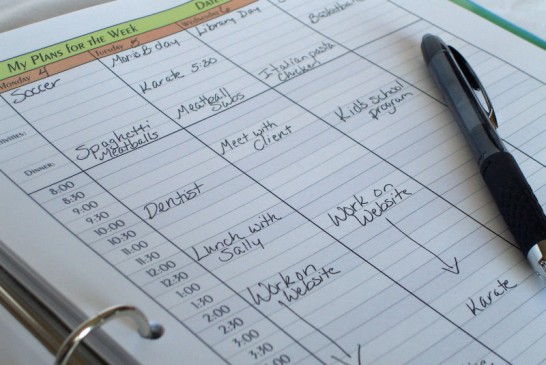 My Plans for the Week
Date
Monday 4
Tuesday 5
Wednesday 6
Soccer
Mario B day
Library Day
Basketball
Karate 5:30
Italian pasta
Chicken
Activities:
Meatball
Subs
Kids school
program
Dinner:
Spaghetti
Meatballs
Meet with
Client
8:00
8:30
9:00
9:30
10:00
10:30
11:00
11:30
12:00
12:30
1:00
1:30
2:00
2:30
3:00
3:30
Dentist
Lunch with
Sally
Work on
Website
Work on
Website
Karate